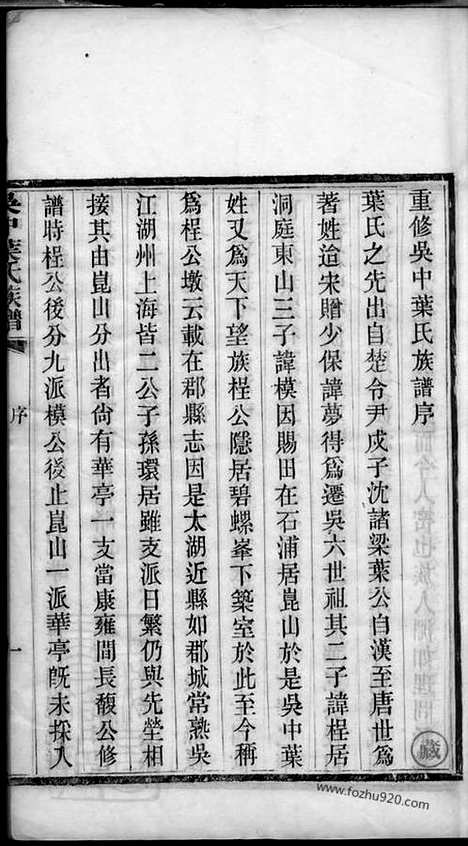 重修吳中葉氏族譜序
葉氏之先出自楚令尹戌子沈諸梁葉公自漢至唐世爲
著姓迨宋贈少保諱夢得爲遷吳六世祖其二子諱桯居
洞庭東山三子諱模因賜田在石浦居崑山於是吳中葉
姓又爲天下望族桯公隱居碧螺峯下築室於此至今稱
爲桯公墩云載在郡縣志因是太湖近縣如郡城常熟吳
江湖州上海皆二公子孫環居雖支派日繁仍與先塋相
接其由崑山分出者尙有華亭一支當康雍間長馥公修
譜時桯公後分九派模公後止崑山一派華亭旣未採入
吳中葉氏族譜
序
一
藏
www.fozhu920.com